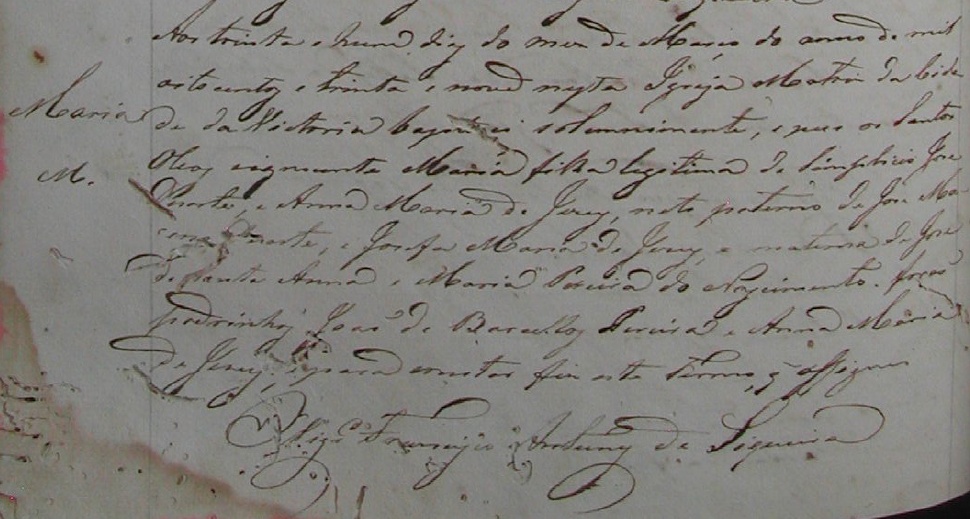 Aos trinta e hum dias do mez de Maio do anno de mil
oitocentos e trinta e nove nesta Igreja Matriz da Cida
Maria
de da Victoria baptizei solemnimente, e puz os Santos
M.
Oleos a Maria filha legitima de Simplicio Jose
Duarte, e Anna Maria de Jesus, neta paterna de Jose Ma
Duarte, e Josefa Maria de Jesus, e materna de Jose
de Santa Anna e Maria Pereira do Nascimento. forão
padrinhos João de Barcellos Pereira e Anna Maria
de Jesus, e para constar fiz este Termo, q assignei
Vigrº Francisco Antunes de Siqueira